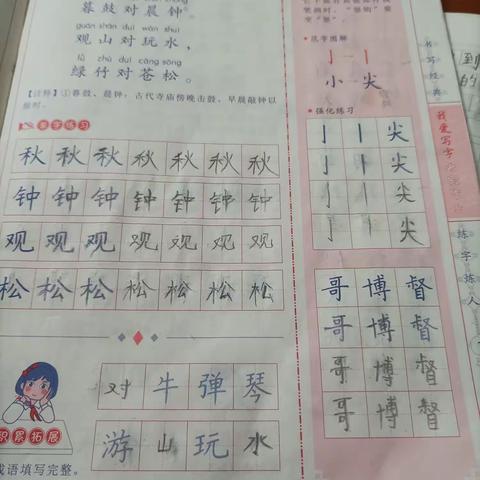 暮鼓对晨钟①
guān shān duì wán shuǐ
观山对玩水,
lǜ zhú duì cāng sōng
绿竹对苍松。
【注释】①暮鼓、晨钟:古代寺庙傍晚击鼓,早晨敲钟以
报时。
美字练习
秋秋秋秋秋秋秋
钟钟钟钟钟钟钟
观观观观观观观
松松松松松松松
对牛弹琴
游山玩水
积累拓展
成语填写完整。
范字图解
亅丨
小尖
强化练习
亅丨尖
亅丨尖
亅丨尖
亅丨尖
哥博督
哥博督
哥博督
哥博督
书写经典
我爱写字
练字炼人
到
的